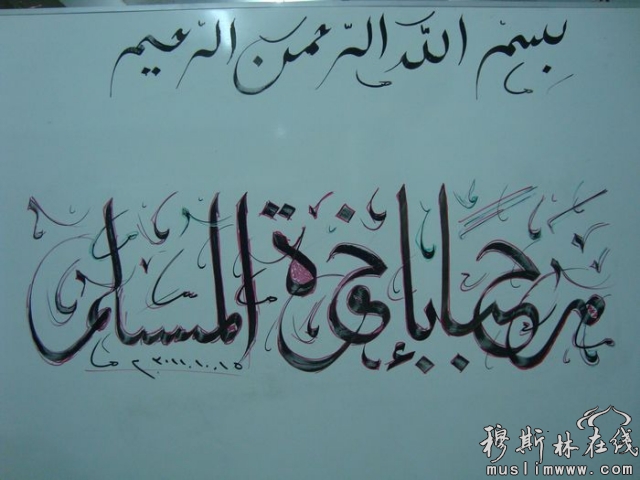 بسم الله الرحمن الرحيم
مرحبًا بإخوة المسلمين
٢٠١١.١٠.١٥م
穆斯林在线
muslimwww.com